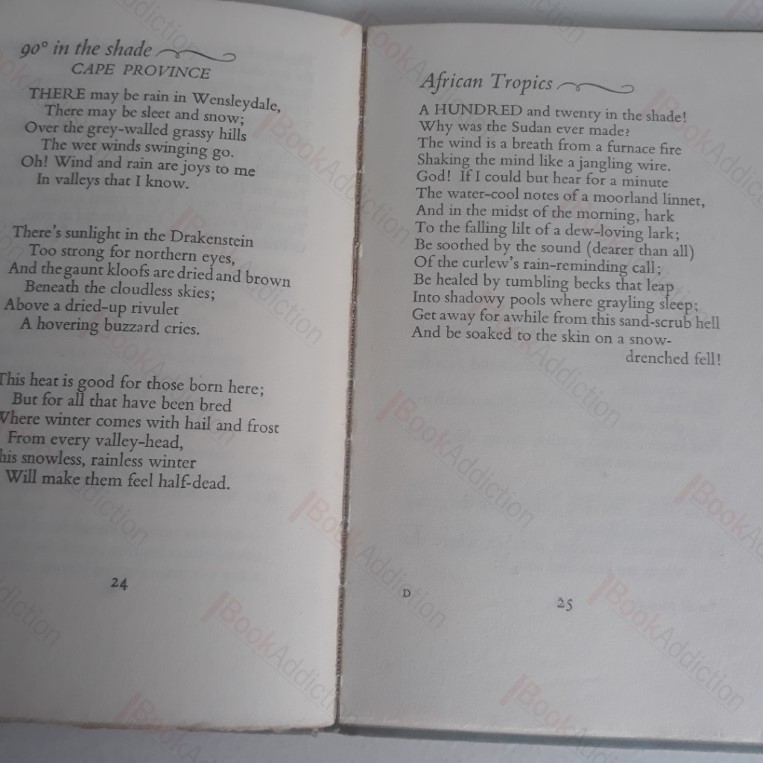 90° in the shade
CAPE PROVINCE
THERE may be rain in Wensleydale,
There may be sleet and snow;
Over the grey-walled grassy hills
The wet winds swinging go.
Oh! Wind and rain are joys to me
In valleys that I know.
There's sunlight in the Drakenstein
Too strong for northern eyes,
And the gaunt kloofs are dried and brown
Beneath the cloudless skies;
Above a dried-up rivulet
A hovering buzzard cries.
This heat is good for those born here;
But for all that have been bred
Where winter comes with hail and frost
From every valley-head,
his snowless, rainless winter
Will make them feel half-dead.
24
African Tropics
A HUNDRED and twenty in the shade!
Why was the Sudan ever made?
The wind is a breath from a furnace fire
Shaking the mind like a jangling wire.
God! If I could but hear for a minute
The water-cool notes of a moorland linnet,
And in the midst of the morning, hark
To the falling lilt of a dew-loving lark;
Be soothed by the sound (dearer than all)
Of the curlew's rain-reminding call;
Be healed by tumbling becks that leap
Into shadowy pools where grayling sleep;
Get away for awhile from this sand-scrub hell
And be soaked to the skin on a snow-
drenched fell!
D
25
BookAddiction